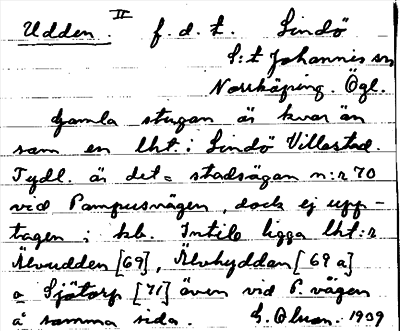 Udden. II f. d. t. Lindö
S:t Johannis sn
Norrköping. Ögl.
Gamla stugan är kvar än
som en lht. i Lindö Villastad.
Tydl. är det = stadsägan n:r 70
vid Pampusvägen, dock ej upp-
tagen i kb. Intill ligga lht:r
Älvudden [69], Älvhyddan [69 a]
o Sjötorp [71] även vid P. vägen
å samma sida. 1939